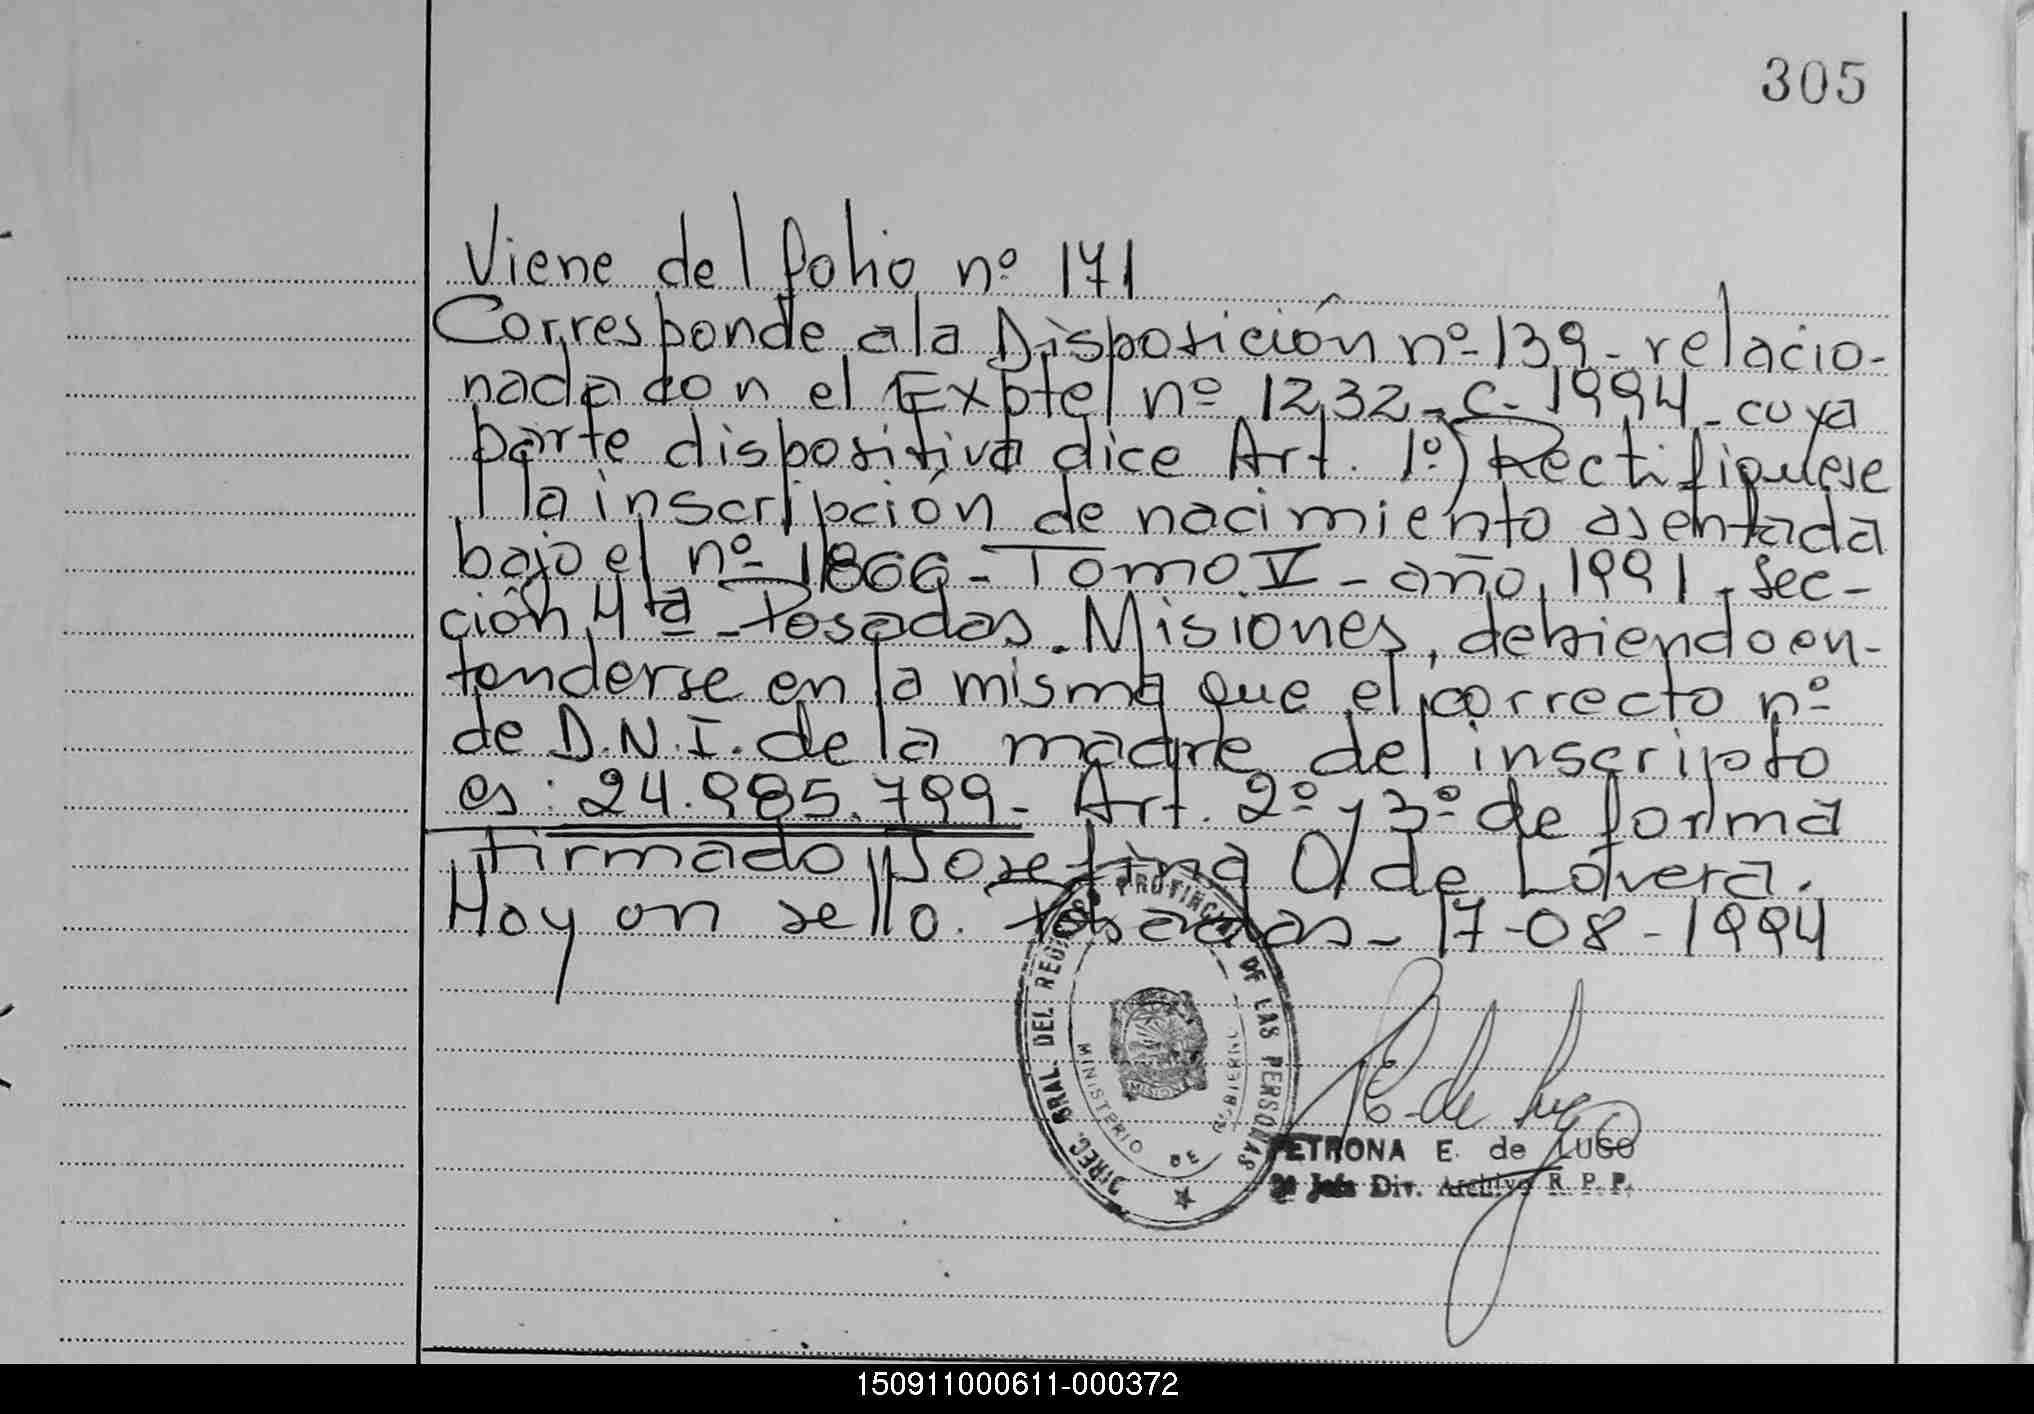 305
Viene del folio nº 171
Corresponde a la Disposición nº 139 - relacio-
nada con el Expte nº 1232 - C - 1994 - cuya
parte dispositiva dice Art. 1º) Rectifiquese
la inscripción de nacimiento asentada
bajo el nº 1866 - Tomo V - año 1991 - Sec-
ción 4ta - Posadas. Misiones, debiendo en-
tenderse en la misma que el correcto nº
de D.N.I. de la madre del inscripto
es: 24.985.799 - Art. 2º y 3º de forma
firmado Josefina O. de Lovera.
Hay un sello. Posadas - 17-08-1994
DIREC. GRAL. DEL REG. PROVINCIAL DE LAS PERSONAS
MINISTERIO DE GOBIERNO
MISIONES
PETRONA E. de LUGO
2º Jefe Div. Archivo R. P. P.
150911000611-000372